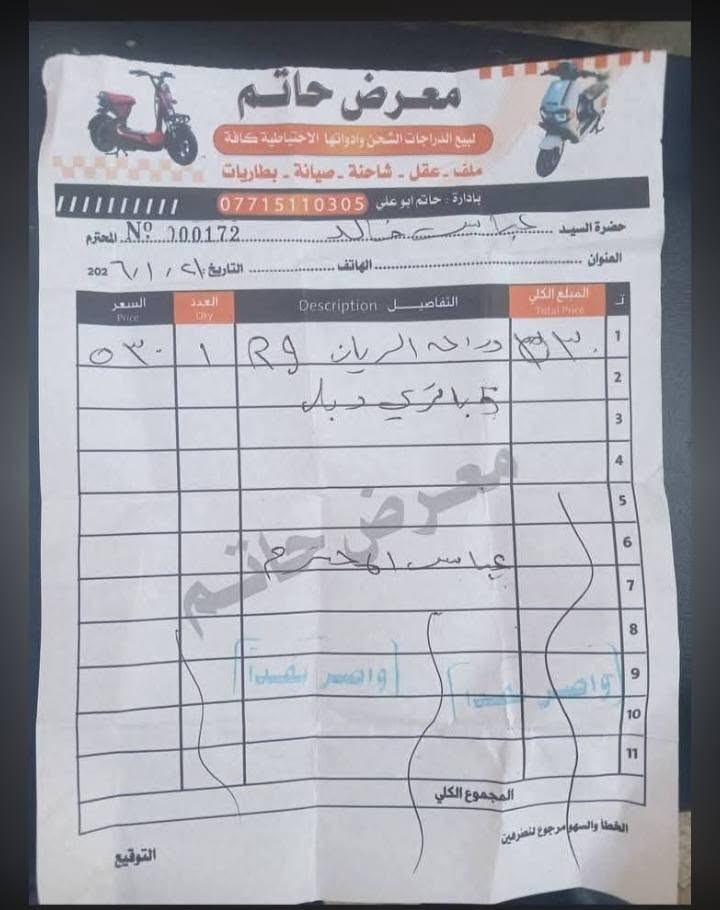 معرض حاتم
لبيع الدراجات الشحن وادواتها الاحتياطية كافة
ملف - عقل - شاحنة - صيانة - بطاريات
بادارة : حاتم ابو علي 07715110305
حضرة السيد عباس خالد المحترم Nº 000172
العنوان الهاتف التاريخ ٢١ / ١ / 202٦
ت المبلغ الكلي Total Price التفاصيل Description العدد Qty السعر Price
1 دراجه الريان R9 ١ ٥٣٠
2
3
4
5
6
7
8
9
10
11
معرض حاتم
عباس المحترم
واصل نقداً
واصل نقداً
المجموع الكلي
الخطأ والسهو مرجوع للطرفين
التوقيع